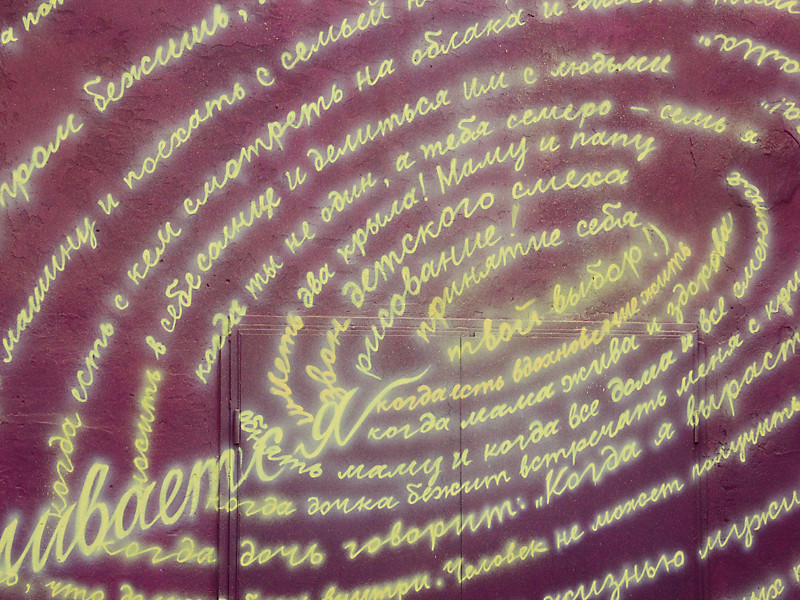 бежишь,
машину и поехать с семьей
когда есть с кем смотреть на облака и
носить в себе солнце и делиться им с людьми
когда ты не один, а тебя семеро – семь я
иметь два крыла! Маму и папу
звон детского смеха
рисование!
принятие себя
твой выбор!)
когда есть вдохновение жить
когда мама жива и здорова
обнять маму и когда все дома и все смеются
когда дочка бежит встречать меня с
когда дочь говорит: „Когда я вырасту
внутри. Человек не может получить
жизнью